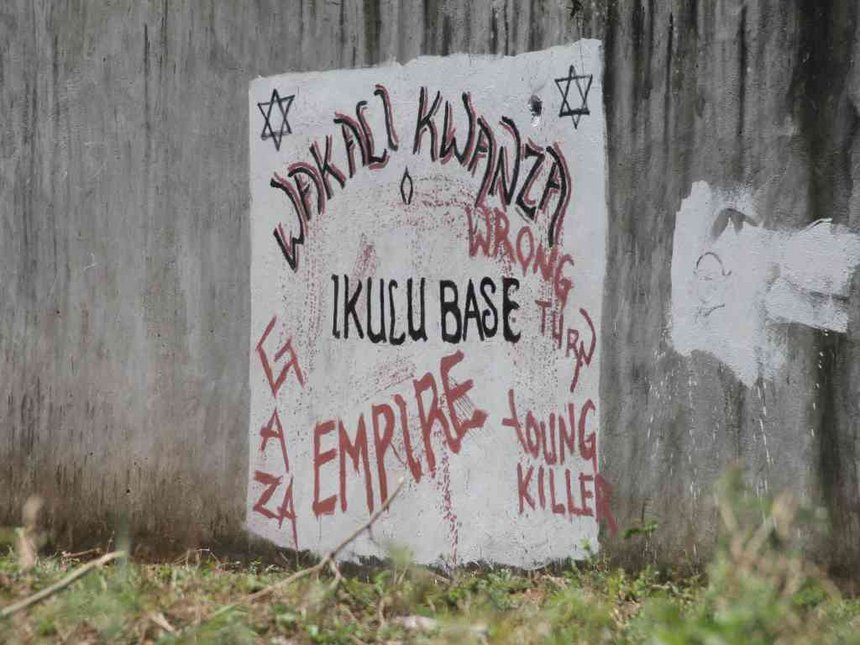 WAKALI KWANZA
WRONG
TURN
IKULU BASE
GAZA
EMPIRE
YOUNG
KILLER